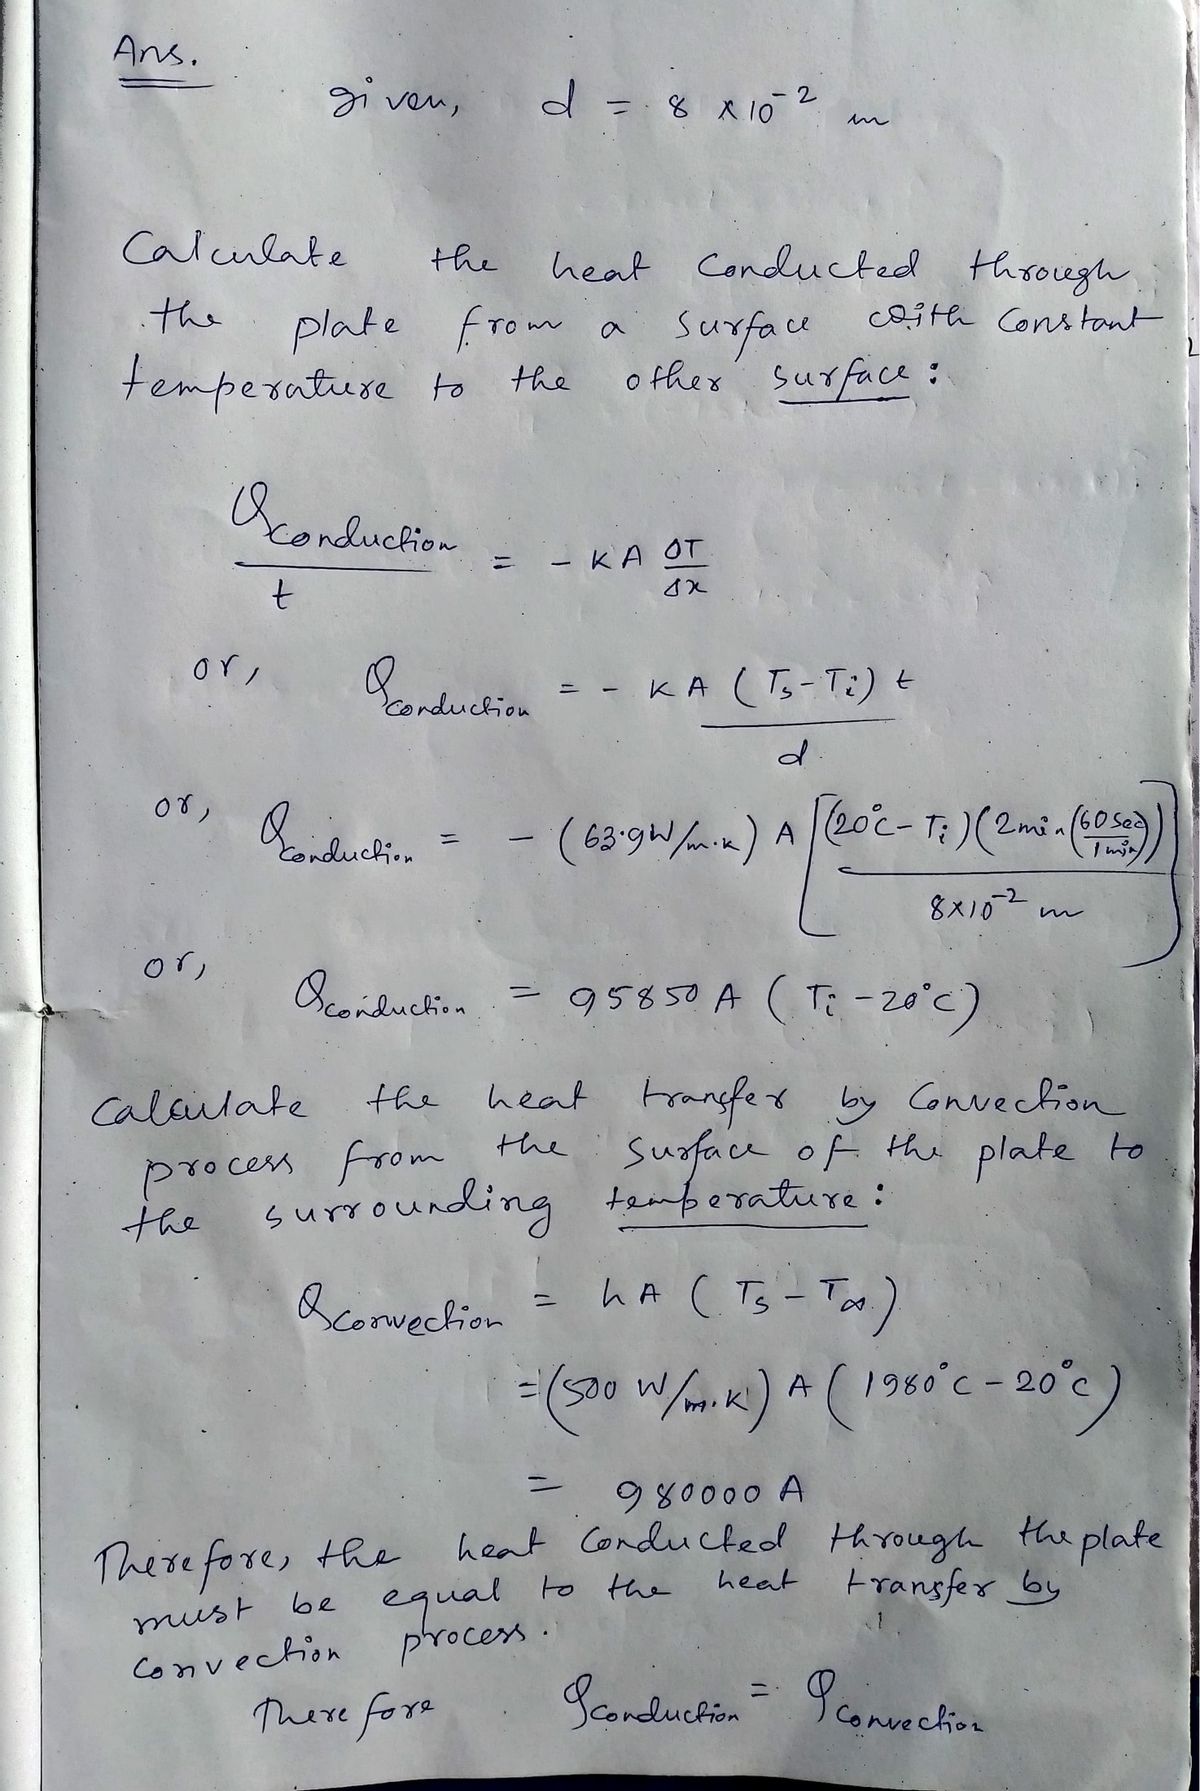 Ans.
given, d = 8 × 10⁻² m
Calculate the heat conducted through
the plate from a surface with constant
temperature to the other surface:
Qconduction / t = - KA ΔT / Δx
or, Qconduction = - KA (Ts - Ti) t / d
or, Qconduction = - (63.9W/m.k) A [(20°C - Ti)(2min(60 sec / 1 min)) / 8×10⁻² m]
or, Qconduction = 95850 A (Ti - 20°C)
Calculate the heat transfer by Convection
process from the surface of the plate to
the surrounding temperature:
Qconvection = hA (Ts - T∞)
= (500 W/m.K) A (1980°C - 20°C)
= 980000 A
Therefore, the heat conducted through the plate
must be equal to the heat transfer by
convection process.
Therefore Qconduction = Qconvection